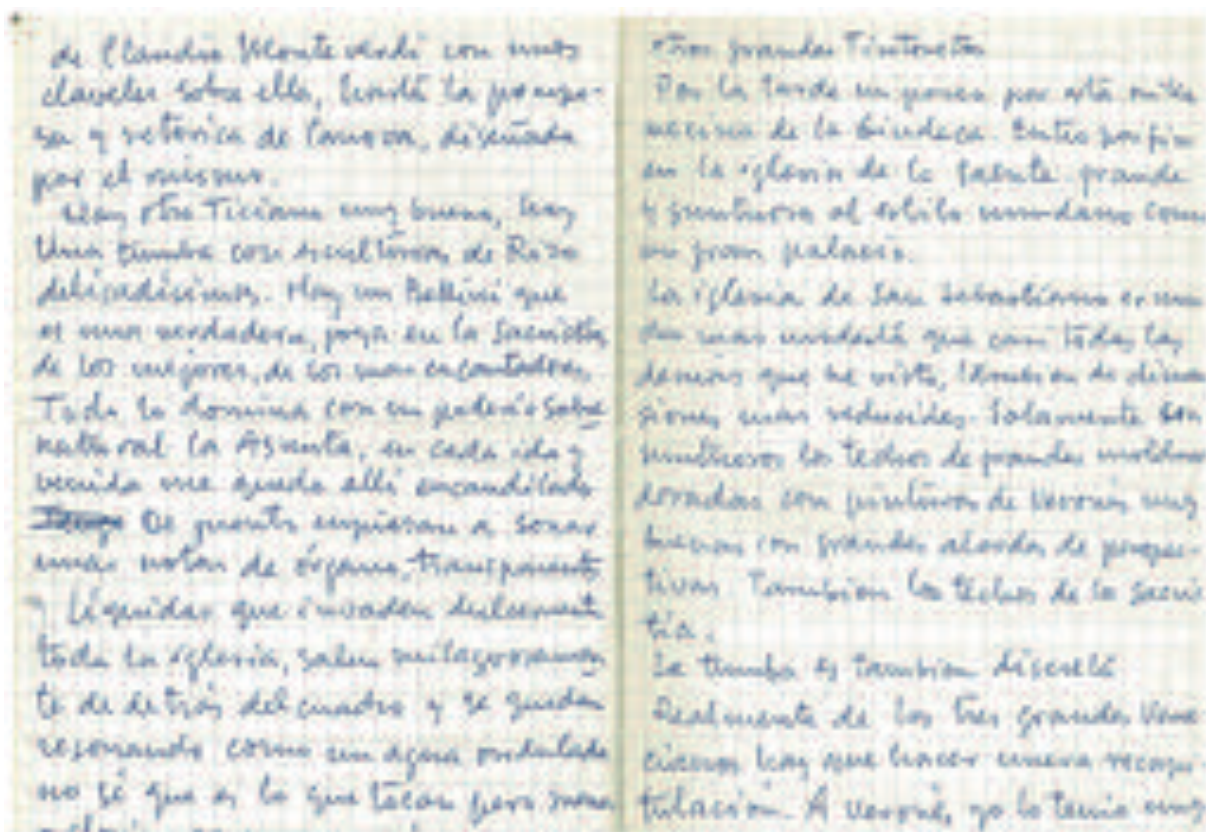 de Claudio Monteverdi con unos
claveles sobre ella, hasta la pompo-
sa y retorica de Canova, diseñada
por el mismo.
Hay otro Ticiano muy bueno, hay
una tumba con esculturas de Rizo
delicadísimas. Hay un Bellini que
es una verdadera joya en la Sacristía
de los mejores, de los mas encantadores,
Todo lo domina con un poderío sobre
natural la Asunta, en cada ida y
venida me quedo alli encandilado
De pronto empiezan a sonar
unas notas de órgano, transparentes
y líquidas que invaden dulcemente
toda la iglesia, salen milagrosamen
te de detrás del cuadro y se quedan
resonando como un agua ondulada
no sé que es lo que tocan pero suena
otros grandes Tintorettos
Por la tarde un paseo por esta orilla
vecina de la Giudeca. Entro por fin
en la iglesia de la grande
y suntuosa al estilo mundano como
un gran palacio.
La iglesia de San Sebastiano es mu
cho mas modesta que casi todas las
demás que he visto, tambien de dimen
siones mas reducidas. Solamente son
suntuosos los techos de grandes molduras
doradas con pinturas de Veronés muy
buenas con grandes alardes de perspec-
tivas Tambien los techos de la sacris
tía.
La tumba es tambien discreta
Realmente de los tres grandes Vene
cianos hay que hacer nueva recapi-
tulación. A Veronés, yo lo tenía muy